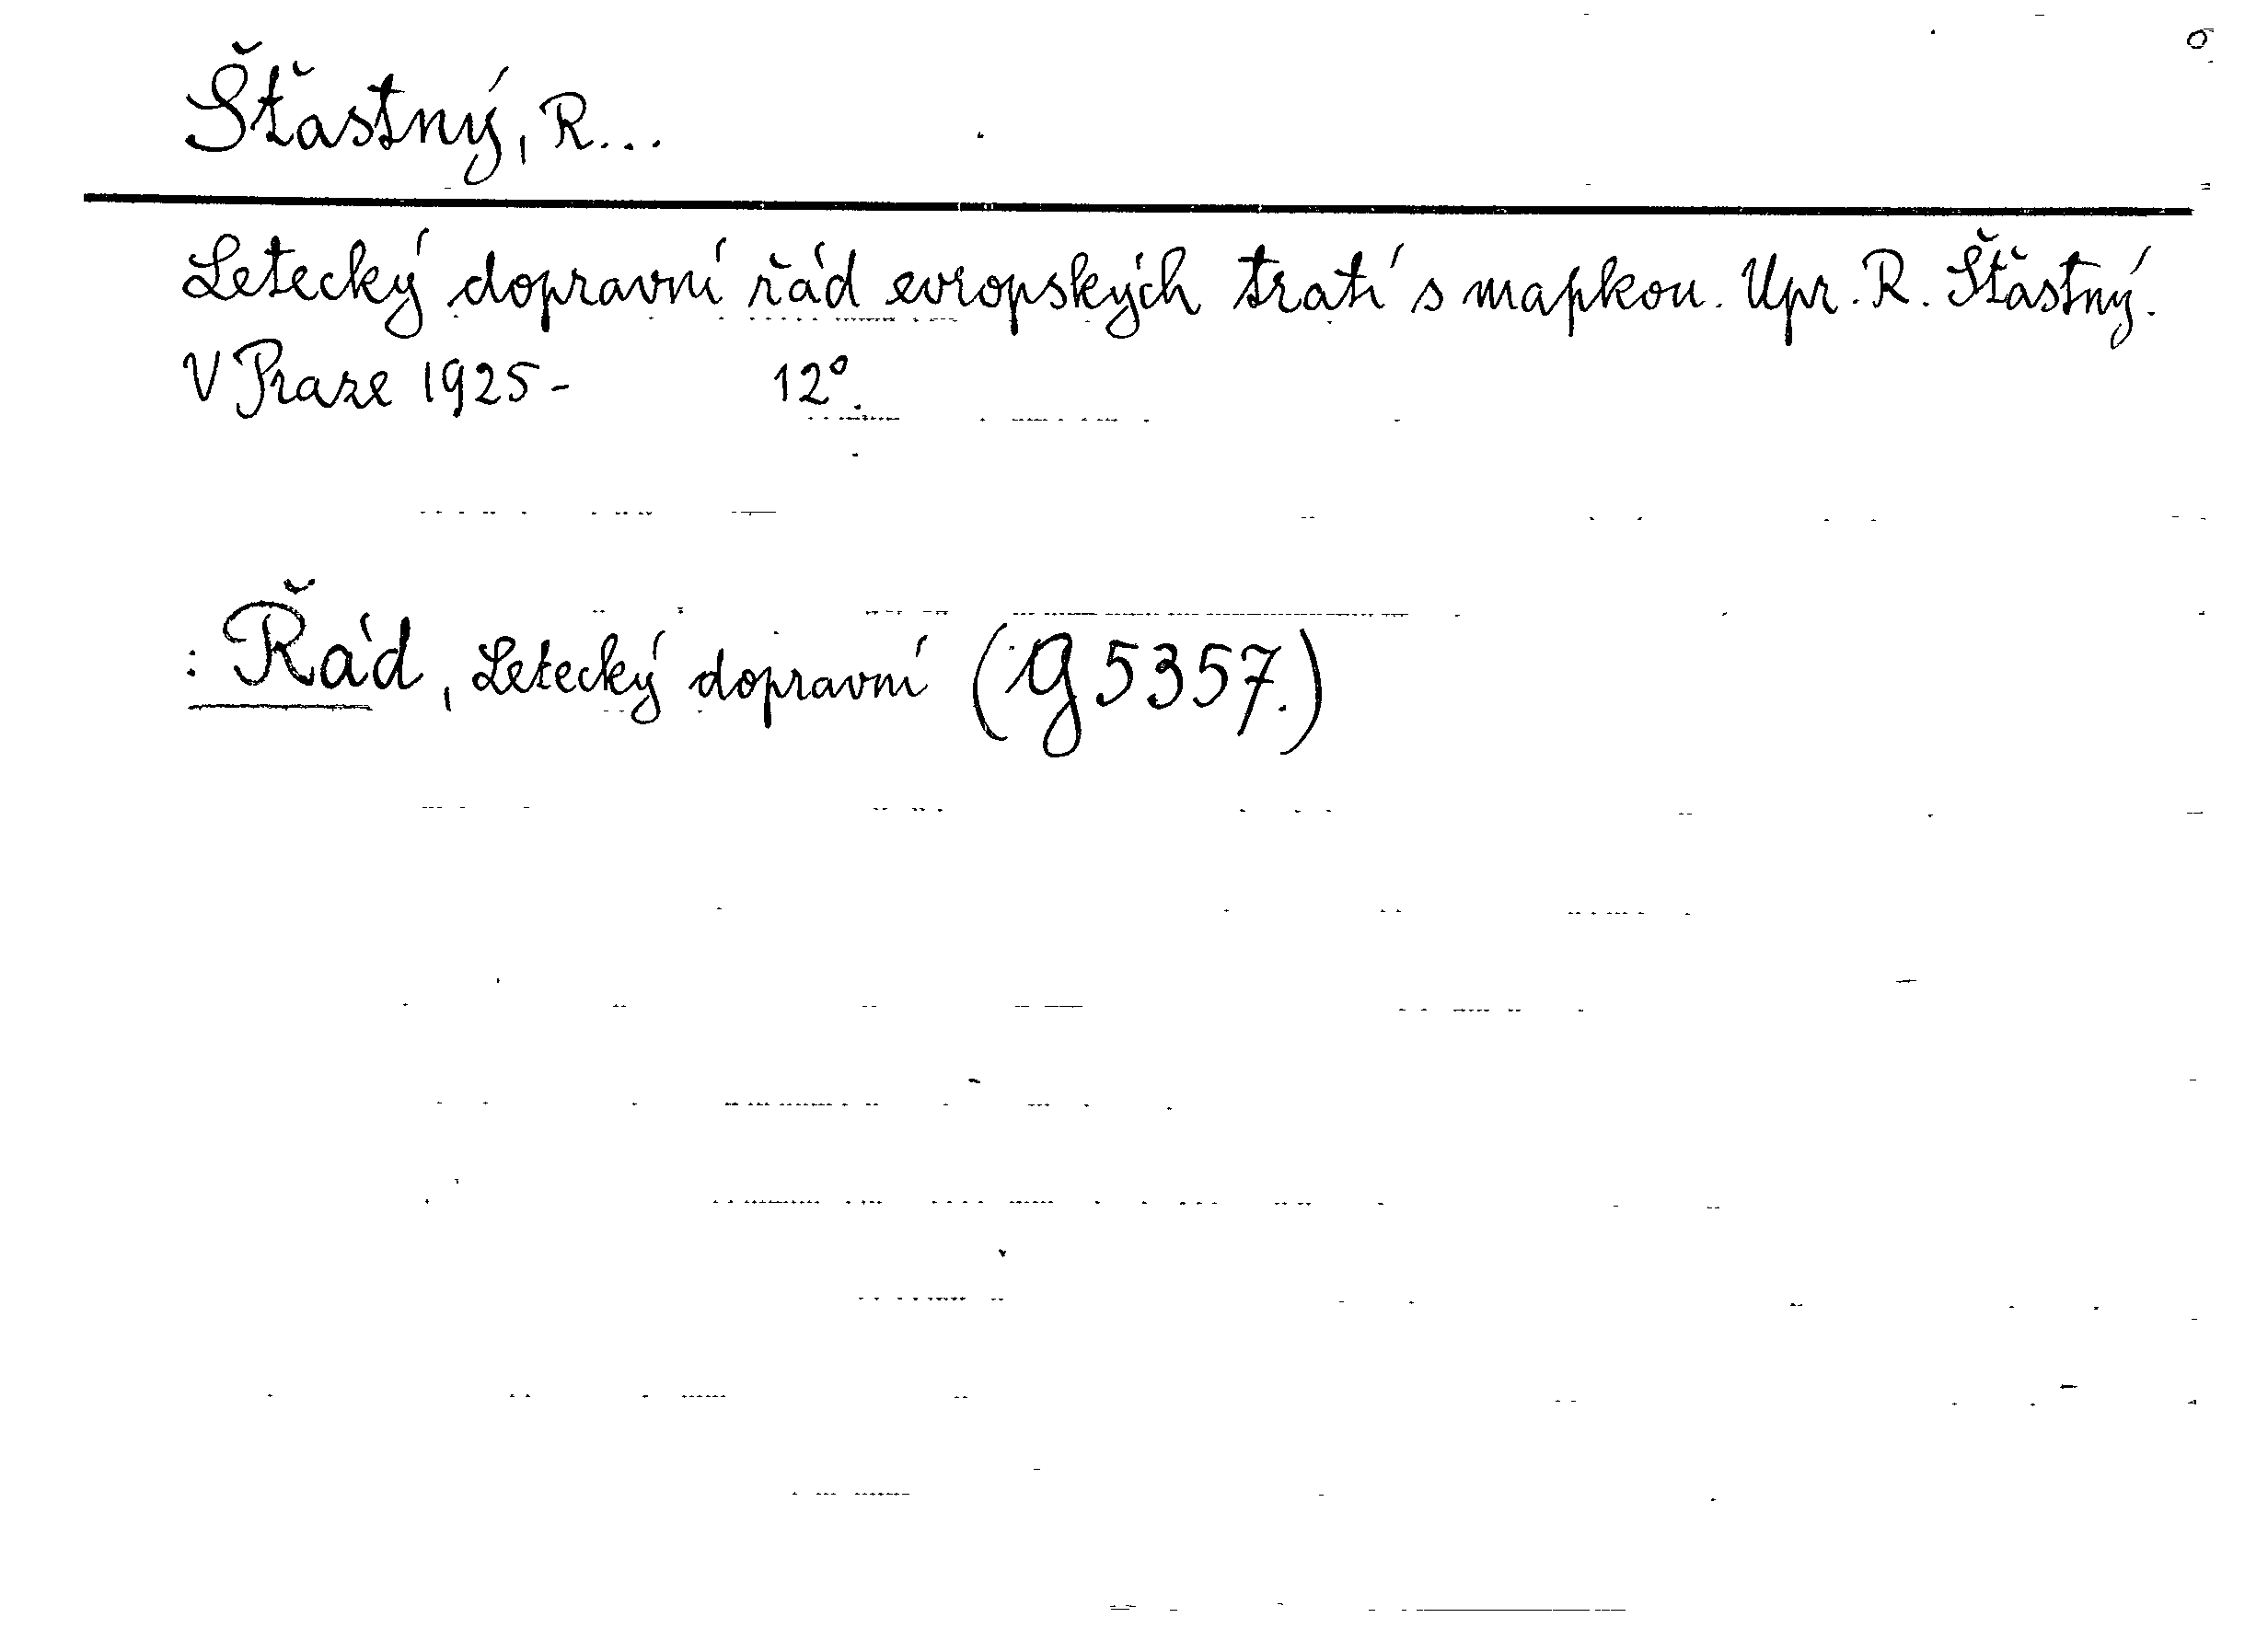 Šťastný, R...
Letecký dopravní řád evropských tratí s mapkou. Upr. R. Šťastný.
V Praze 1925-  12°.
: Řád, Letecký dopravní (g 5357.)